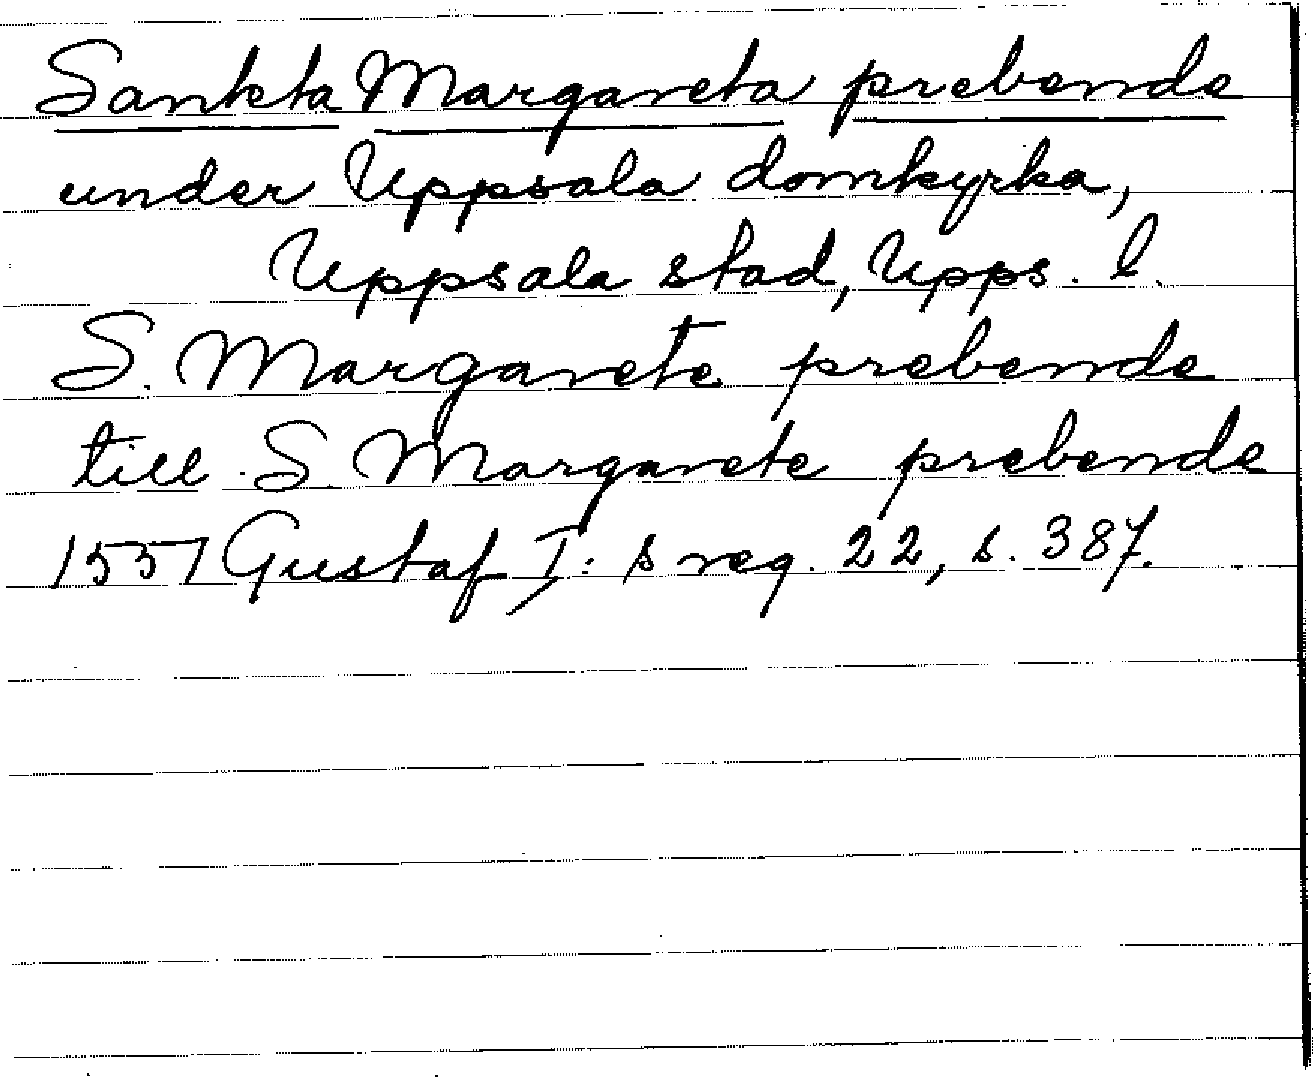 Sankta Margareta prebende
under Uppsala domkyrka,
Uppsala stad, Upps. l.
S. Margarete prebende
till S. Margarete prebende
1557 Gustaf I:s reg. 22, s. 387.